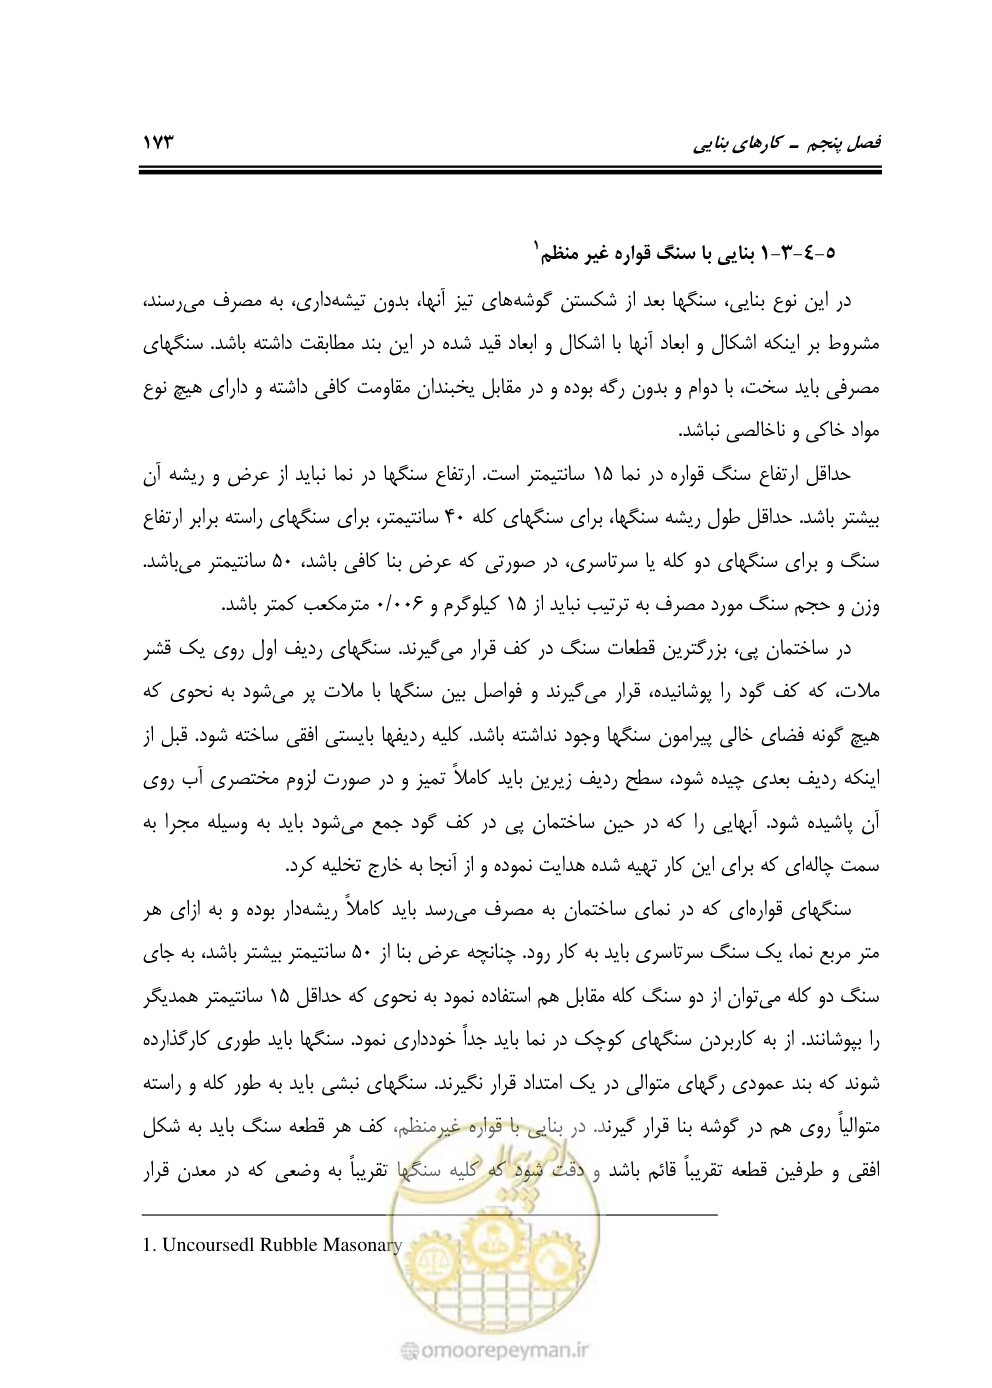 فصل پنجم ـ کارهای بنایی
۱۷۳
۵-۴-۳-۱ بنایی با سنگ قواره غیر منظم۱
در این نوع بنایی، سنگها بعد از شکستن گوشه‌های تیز آنها، بدون تیشه‌داری، به مصرف می‌رسند،
مشروط بر اینکه اشکال و ابعاد آنها با اشکال و ابعاد قید شده در این بند مطابقت داشته باشد. سنگهای
مصرفی باید سخت، با دوام و بدون رگه بوده و در مقابل یخبندان مقاومت کافی داشته و دارای هیچ نوع
مواد خاکی و ناخالصی نباشد.
حداقل ارتفاع سنگ قواره در نما ۱۵ سانتیمتر است. ارتفاع سنگها در نما نباید از عرض و ریشه آن
بیشتر باشد. حداقل طول ریشه سنگها، برای سنگهای کله ۴۰ سانتیمتر، برای سنگهای راسته برابر ارتفاع
سنگ و برای سنگهای دو کله یا سرتاسری، در صورتی که عرض بنا کافی باشد، ۵۰ سانتیمتر می‌باشد.
وزن و حجم سنگ مورد مصرف به ترتیب نباید از ۱۵ کیلوگرم و ۰/۰۰۶ مترمکعب کمتر باشد.
در ساختمان پی، بزرگترین قطعات سنگ در کف قرار می‌گیرند. سنگهای ردیف اول روی یک قشر
ملات، که کف گود را پوشانیده، قرار می‌گیرند و فواصل بین سنگها با ملات پر می‌شود به نحوی که
هیچ گونه فضای خالی پیرامون سنگها وجود نداشته باشد. کلیه ردیفها بایستی افقی ساخته شود. قبل از
اینکه ردیف بعدی چیده شود، سطح ردیف زیرین باید کاملاً تمیز و در صورت لزوم مختصری آب روی
آن پاشیده شود. آبهایی را که در حین ساختمان پی در کف گود جمع می‌شود باید به وسیله مجرا به
سمت چاله‌ای که برای این کار تهیه شده هدایت نموده و از آنجا به خارج تخلیه کرد.
سنگهای قواره‌ای که در نمای ساختمان به مصرف می‌رسد باید کاملاً ریشه‌دار بوده و به ازای هر
متر مربع نما، یک سنگ سرتاسری باید به کار رود. چنانچه عرض بنا از ۵۰ سانتیمتر بیشتر باشد، به جای
سنگ دو کله می‌توان از دو سنگ کله مقابل هم استفاده نمود به نحوی که حداقل ۱۵ سانتیمتر همدیگر
را بپوشانند. از به کاربردن سنگهای کوچک در نما باید جداً خودداری نمود. سنگها باید طوری کارگذارده
شوند که بند عمودی رگهای متوالی در یک امتداد قرار نگیرند. سنگهای نبشی باید به طور کله و راسته
متوالیاً روی هم در گوشه بنا قرار گیرند. در بنایی با قواره غیرمنظم، کف هر قطعه سنگ باید به شکل
افقی و طرفین قطعه تقریباً قائم باشد و دقت شود که کلیه سنگها تقریباً به وضعی که در معدن قرار
1. Uncoursedl Rubble Masonary
امور پیمان
omoorepeyman.ir